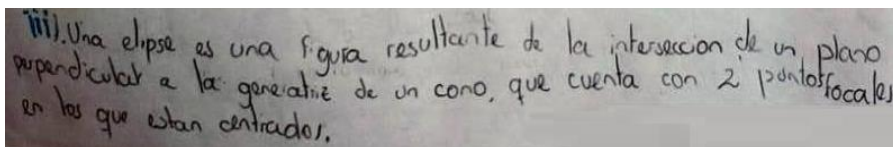 iii). Una elipse es una figura resultante de la interseccion de un plano
perpendicular a la generatriz de un cono, que cuenta con 2 puntos focales
en los que estan centrados.